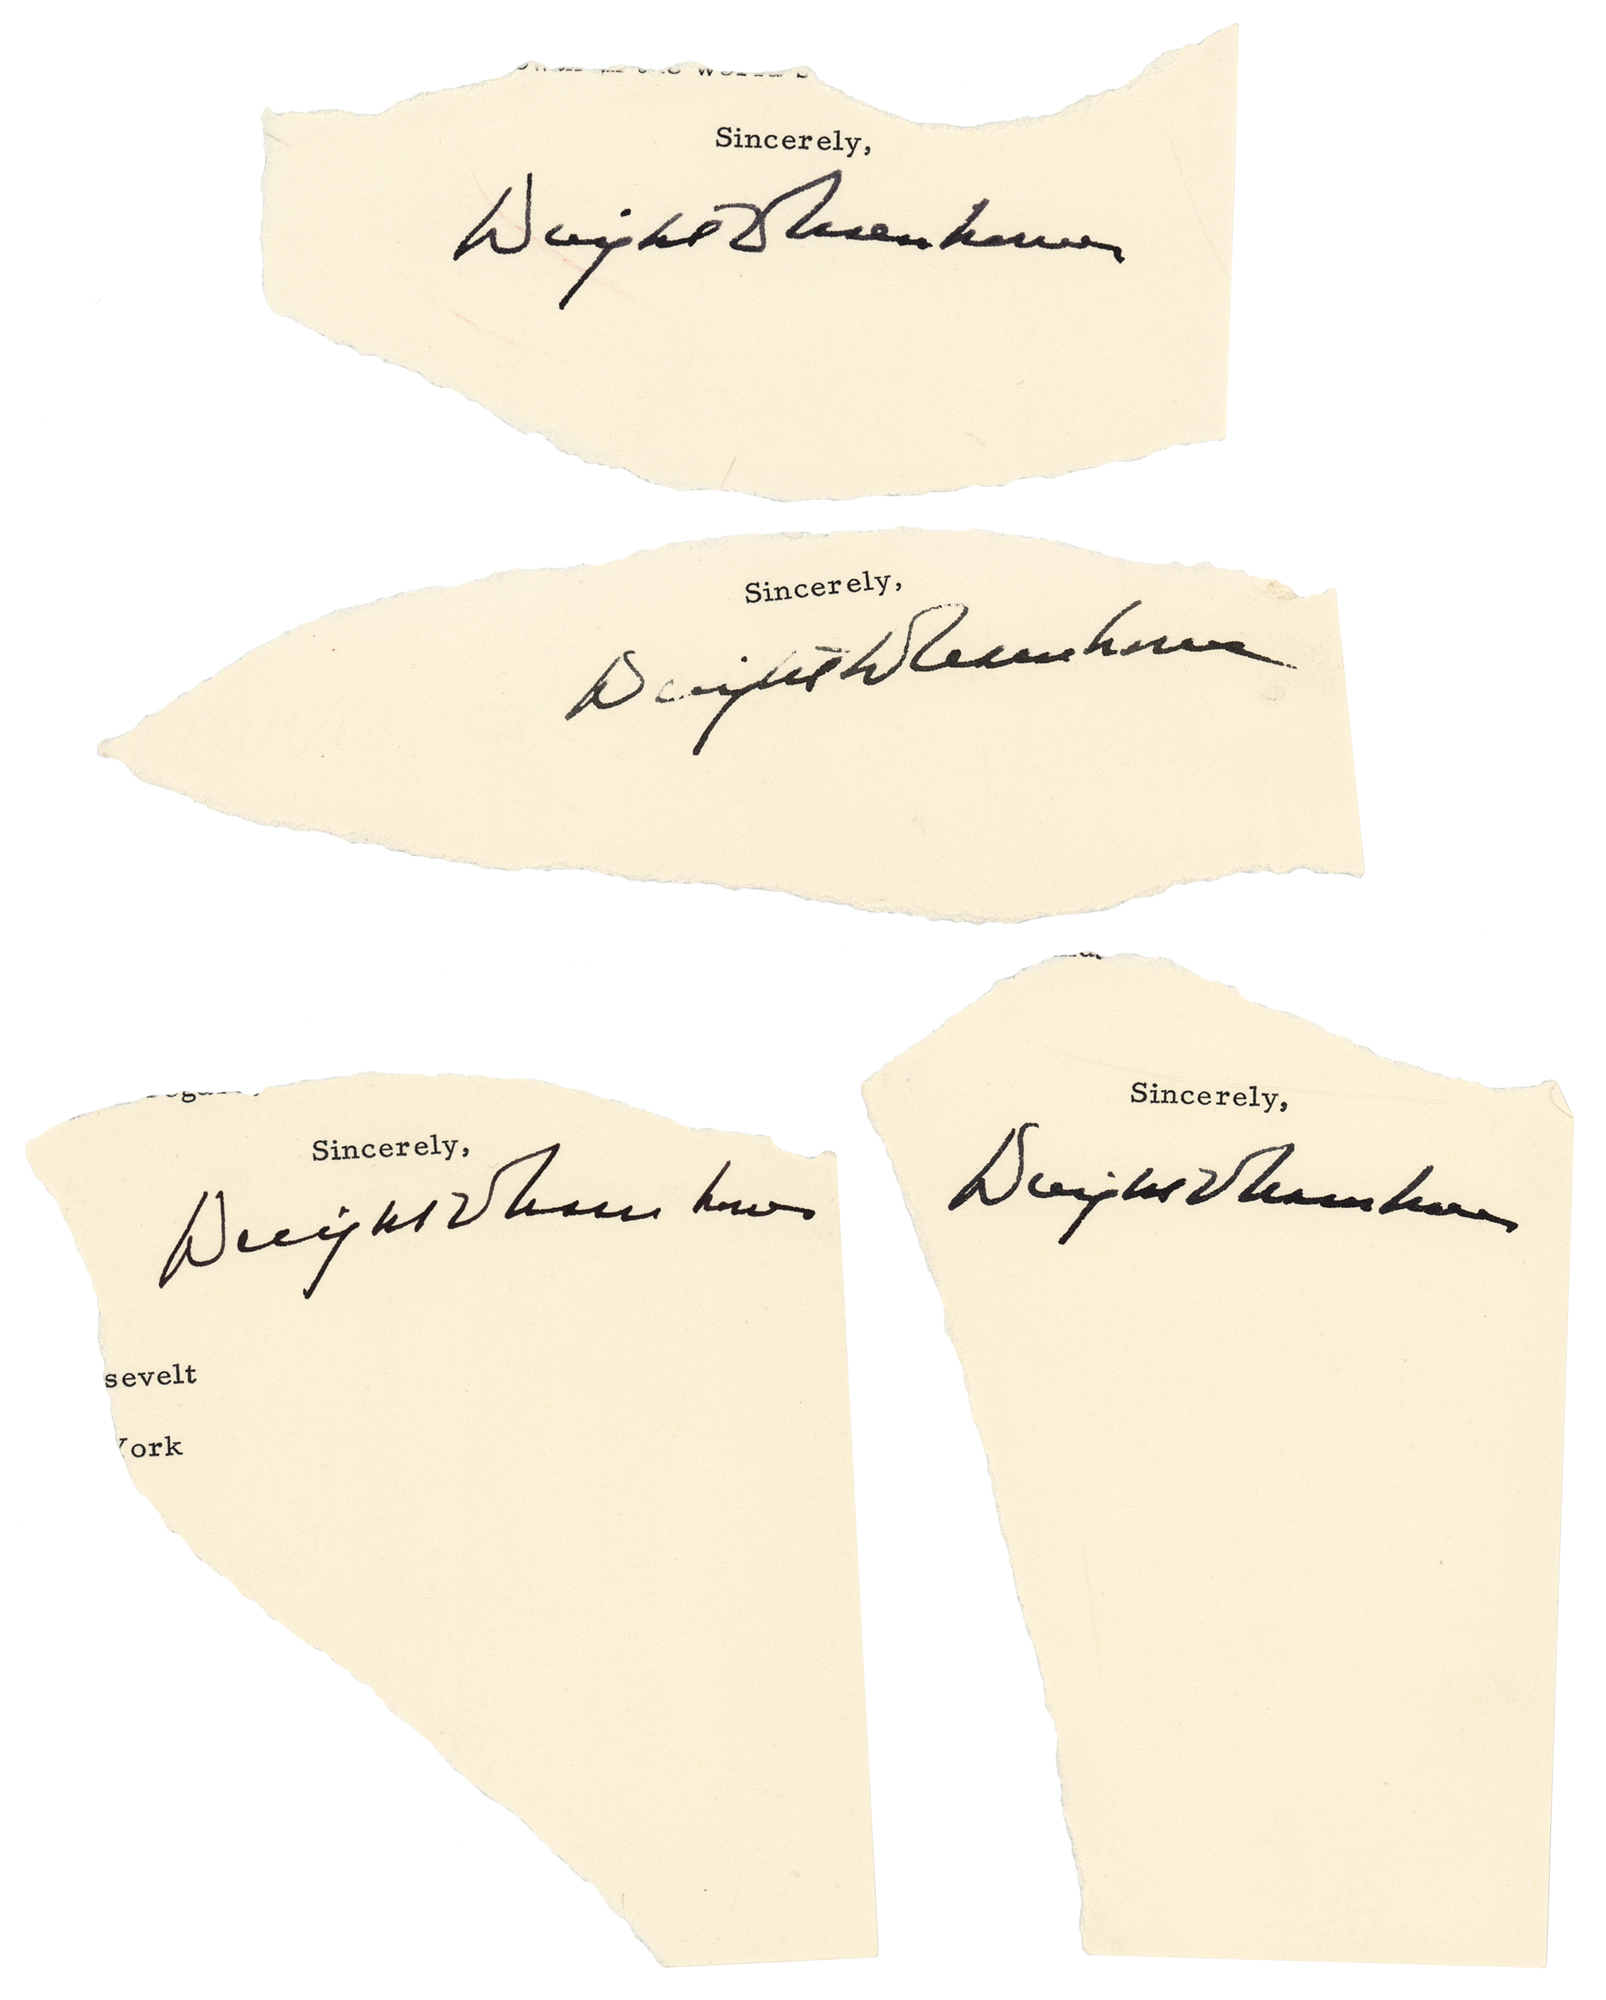 Sincerely,
Dwight D Eisenhower
Sincerely,
Dwight D Eisenhower
Sincerely,
Dwight D Eisenhower
sevelt
York
Sincerely,
Dwight D Eisenhower